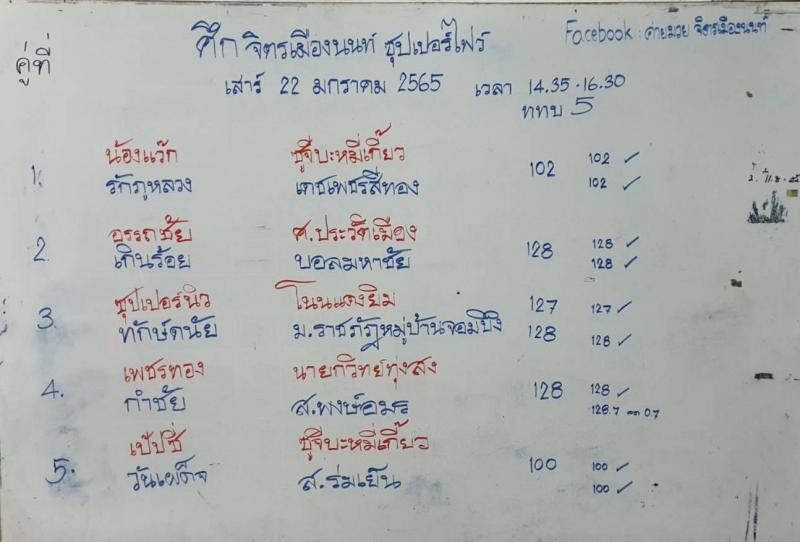 ศึก จิตรเมืองนนท์ ซุปเปอร์ไฟว์
Facebook : ค่ายมวย จิตรเมืองนนท์
คู่ที่
เสาร์ 22 มกราคม 2565 เวลา 14.35 - 16.30
ททบ 5
1. น้องแว๊ก ซูจีบะหมี่เกี๊ยว 102 102 ✓
รักภูหลวง เดชเพชรสีทอง 102 ✓
2. อรรถชัย ศ.ประวัติเมือง 128 128 ✓
เกินร้อย บอลมหาชัย 128 ✓
3. ซุปเปอร์นิว โนนแดงยิม 127 127 ✓
ทักษ์ดนัย ม.ราชภัฎหมู่บ้านจอมบึง 128 128 ✓
4. เพชรทอง นายกวิทย์ทุ่งสง 128 128 ✓
กำชัย ส.พงษ์อมร 128.7 ลด 0.7
5. เป๊ปซี่ ซูจีบะหมี่เกี๊ยว 100 100 ✓
วันเผด็จ ส.ร่มเย็น 100 ✓